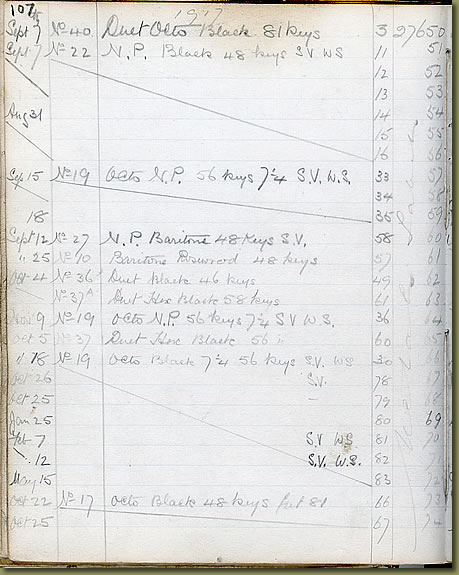 107
1917
Sept 7 No 40 Duet Octo Black 81 keys 3 27650
Sept 7 No 22 N.P. Black 48 keys SV WS 11 51
12 52
13 53
Aug 31 14 54
15 55
16 56
Sep 15 No 19 Octo N.P. 56 keys 7¼ S.V. W.S. 33 57
34 58
18 35 59
Sept 12 No 27 N.P. Baritone 48 Keys S.V. 58 60
" 25 No 10 Baritone Boxwood 48 keys 57 61
Oct 4 No 36 Duet Black 46 keys 49 62
No 37A Duet Hex Black 58 keys 61 63
Nov 9 No 19 Octo N.P. 56 keys 7¼ S V W S. 36 64
Oct 5 No 37 Duet Hex Black 56 " 60 65
" 18 No 19 Octo Black 7¼ 56 keys S.V. WS 30 66
Oct 26 S.V. 78 67
Oct 25 – 79 68
Jan 25 80 69
Feb 7 S.V WS 81 70
" 12 S.V. W.S. 82
May 15 83 72
Oct 22 No 17 Octo Black 48 keys 66 73
Oct 25 67 74